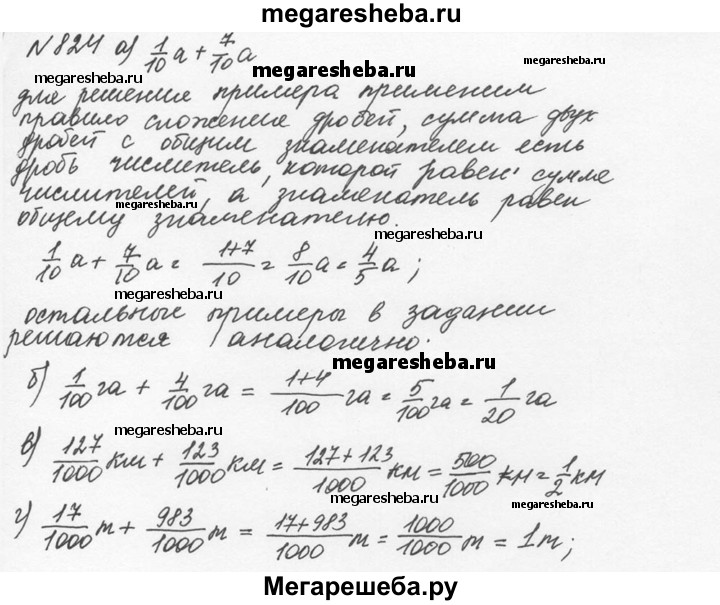 megaresheba.ru
N824 а) 1/10 а + 7/10 а
megaresheba.ru
для решения примера применим
правило сложения дробей, сумма двух
дробей с общим знаменателем есть
дробь числитель, которой равен сумме
числителей, а знаменатель равен
megaresheba.ru
общему знаменателю.
megaresheba.ru
1/10 а + 7/10 а = 1+7/10 = 8/10 а = 4/5 а;
megaresheba.ru
остальные примеры в задании
решаются аналогично.
megaresheba.ru
б) 1/100 га + 4/100 га = 1+4/100 га = 5/100 га = 1/20 га
megaresheba.ru
в) 127/1000 км + 123/1000 км = 127+123/1000 км = 500/1000 км = 1/2 км
megaresheba.ru
megaresheba.ru
г) 17/1000 т + 983/1000 т = 17+983/1000 т = 1000/1000 т = 1т;
Мегарешеба.ру